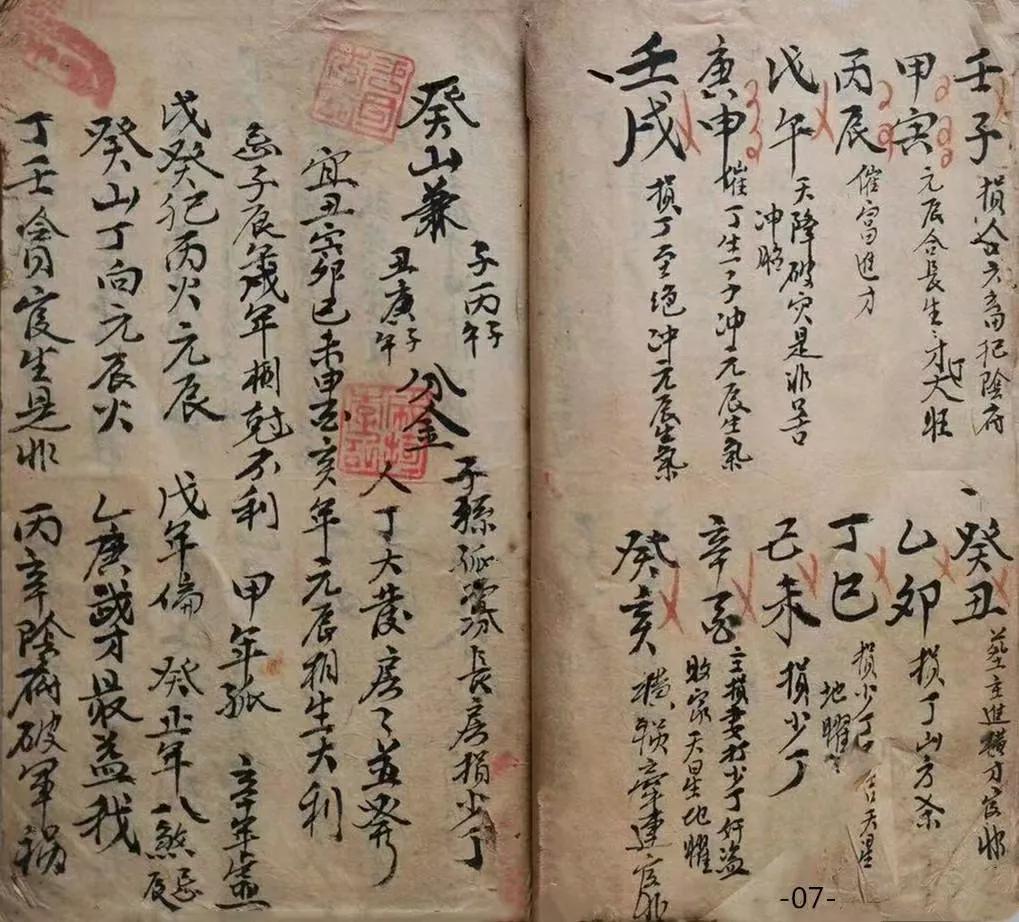 壬子 損人口六畜犯陰府
甲寅 元辰合長生之才大旺
丙辰 催富進才
戊午 天降破穴是非咎
冲胎
庚申 催丁生一子冲元辰生氣
壬戌 損丁至絕冲元辰生氣
癸丑 葬主進橫才官非
乙卯 損丁山方杀
丁巳 損少丁 天星
地曜
己未 損少丁
辛酉 主損妻打少丁奸盜
敗家天星地曜
癸亥 橫損牽連官非
癸山兼
子丙子午 丑庚子午
分金
子孫孤寡 長房損少丁
人丁大發房々並發
宜丑寅卯巳未申酉亥年元辰相生大利
忌子辰歲年相尅不利 甲年孤 辛年虛
戊癸犯丙火元辰 戊年傷 癸正年八煞忌辰
癸山丁向元辰火 乙庚武才最益我
丁壬貪官生是非 丙辛陰府破軍禍
-07-